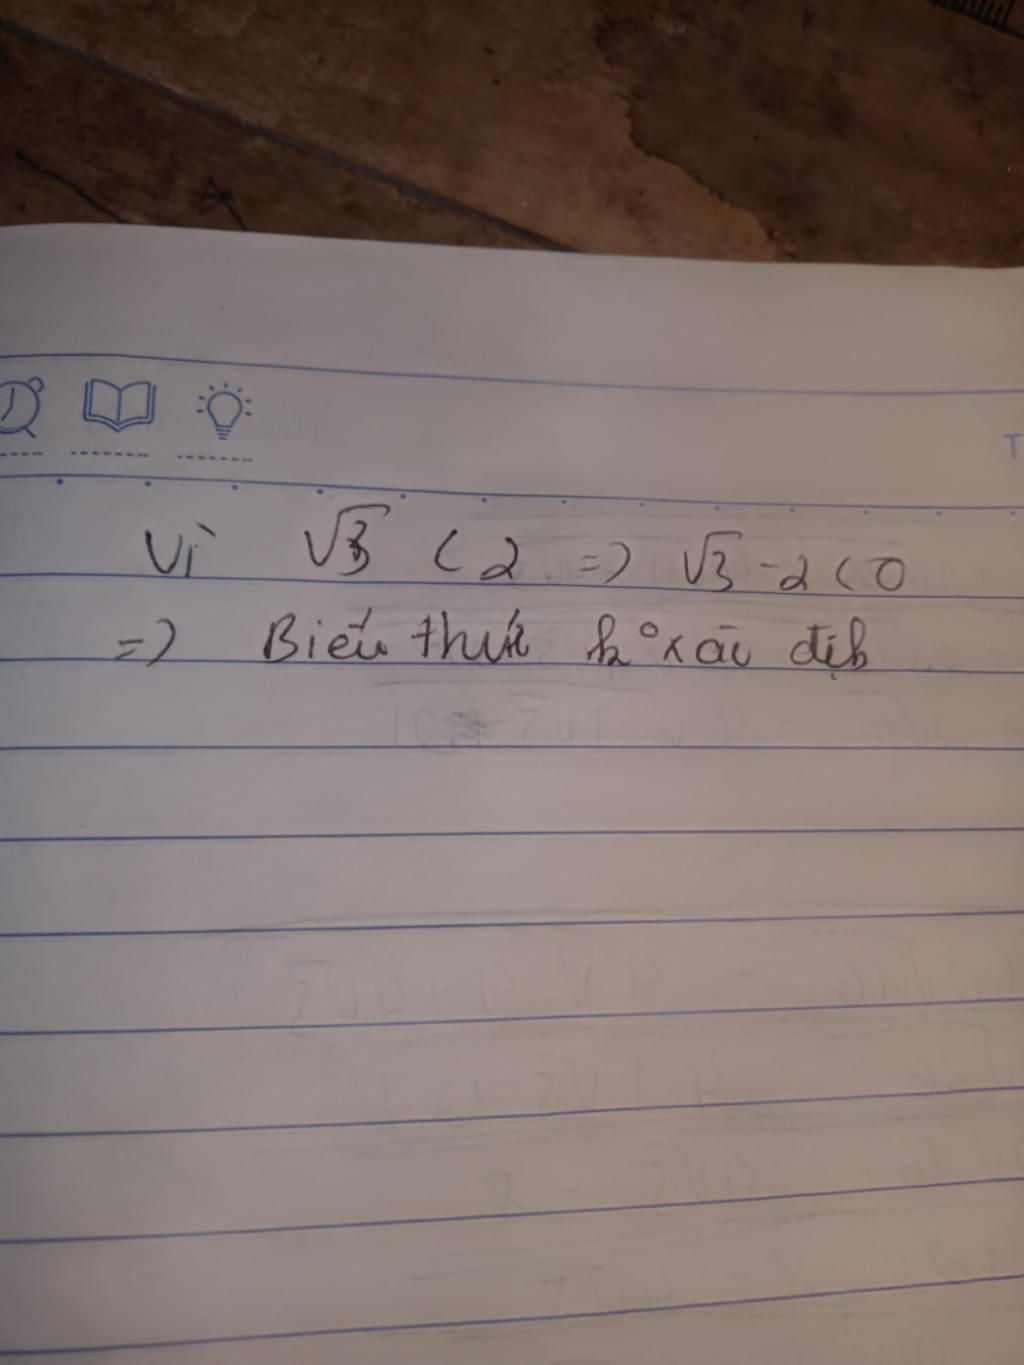 Vì √3 < 2 => √3 - 2 < 0
=> Biểu thức k° xác định
T